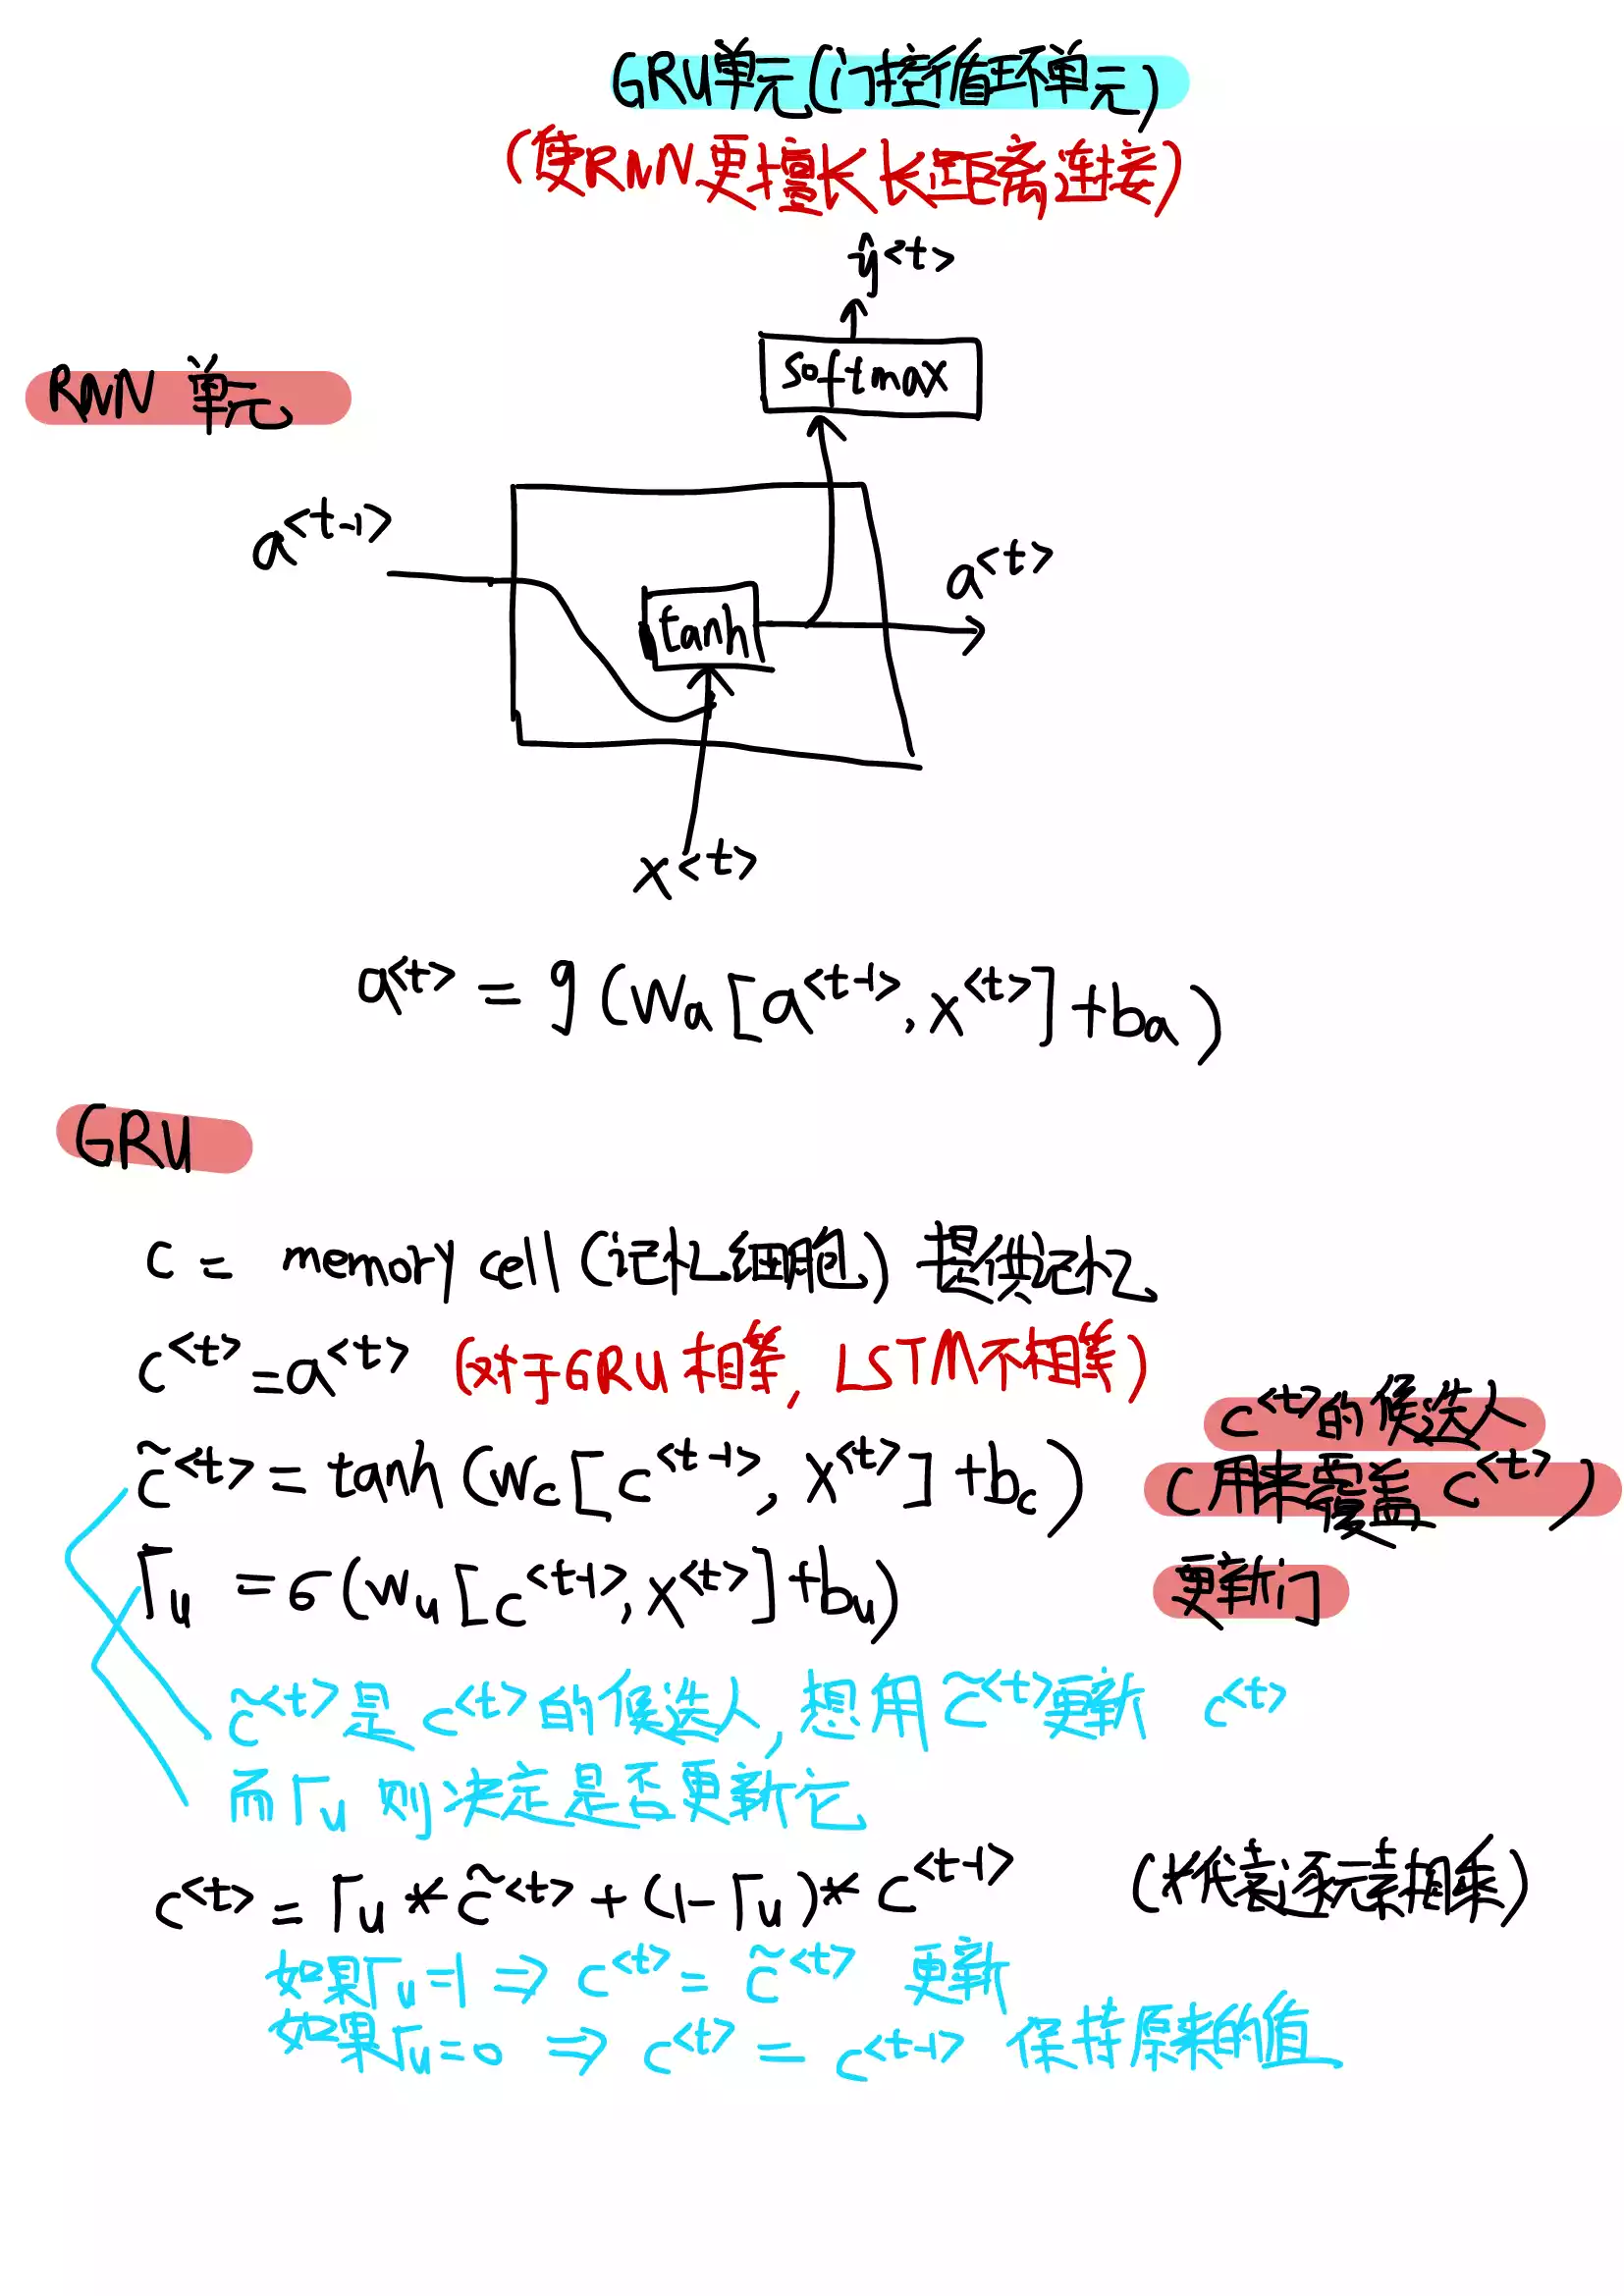 GRU单元(门控循环单元)
(使RNN更擅长长距离连接)
ŷ<t>
softmax
RNN 单元
a<t-1>
a<t>
tanh
x<t>
a<t> = g(Wa[a<t-1>, x<t>]+ba)
GRU
c = memory cell(记忆细胞) 提供记忆
c<t>=a<t> (对于GRU相等, LSTM不相等)
c<t>的候选人
c̃<t> = tanh(Wc[c<t-1>, x<t>]+bc)
(用来覆盖 c<t>)
Γu = σ(Wu[c<t-1>, x<t>]+bu)
更新门
c̃<t>是 c<t>的候选人, 想用 c̃<t>更新 c<t>
而Γu 则决定是否更新它
c<t> = Γu * c̃<t> + (1-Γu)* c<t-1> (*代表逐元素相乘)
如果Γu=1 ⇒ c<t> = c̃<t> 更新
如果Γu=0 ⇒ c<t> = c<t-1> 保持原来的值